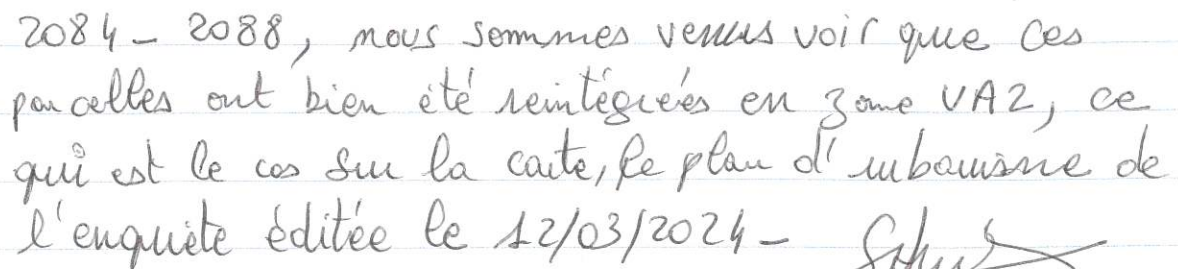 2084 - 2088, nous sommes venus voir que ces
parcelles ont bien été réintégrées en zone UA2, ce
qui est le cas sur la carte, le plan d'urbanisme de
l'enquête éditée le 12/03/2024 -